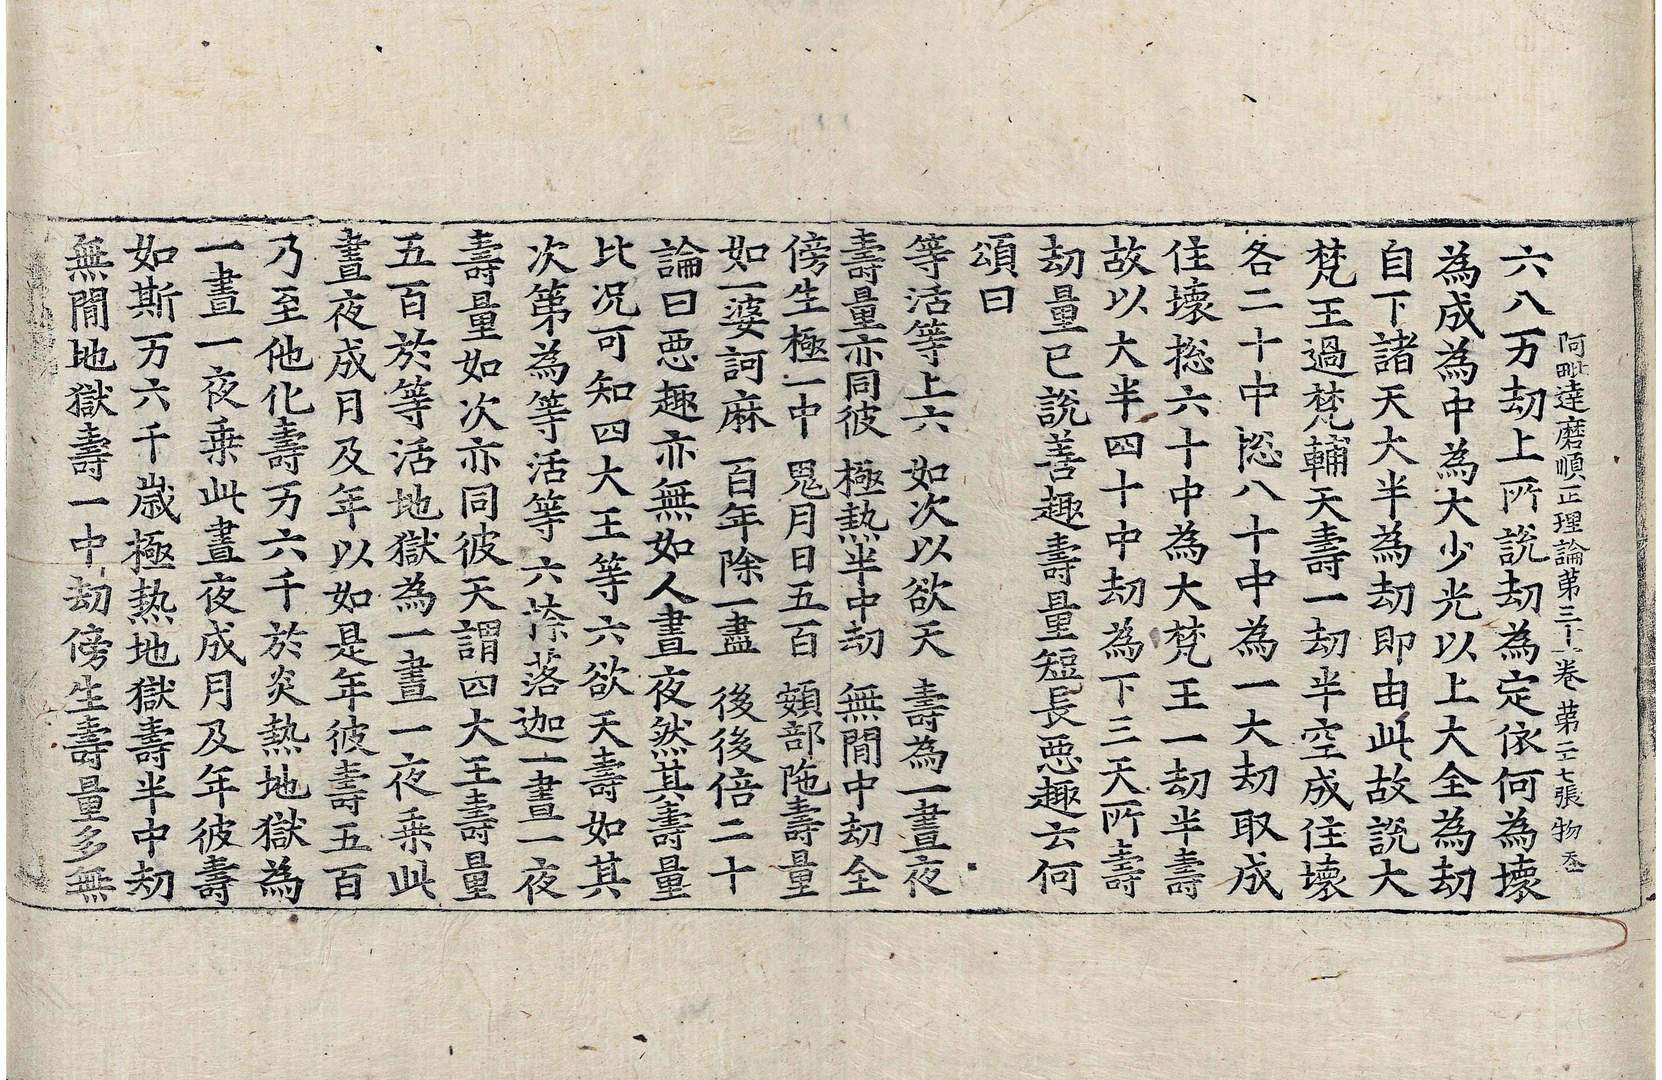 阿毗達磨順正理論第三十一卷 第二十七張 物
六八万劫上所說劫為定依何為壞
為成為中為大少光以上大全為劫
自下諸天大半為劫即由此故說大
梵王過梵輔天壽一劫半空成住壞
各二十中捴八十中為一大劫取成
住壞捴六十中為大梵王一劫半壽
故以大半四十中劫為下三天所壽
劫量已說善趣壽量短長惡趣云何
頌曰
等活等上六　如次以欲天　壽為一晝夜
壽量亦同彼　極熱半中劫　無間中劫全
傍生極一中　鬼月日五百　頞部陁壽量
如一婆訶麻　百年除一盡　後後倍二十
論曰惡趣亦無如人晝夜然其壽量
比況可知四大王等六欲天壽如其
次第為等活等六㮈落迦一晝一夜
壽量如次亦同彼天謂四大王壽量
五百於等活地獄為一晝一夜乗此
晝夜成月及年以如是年彼壽五百
乃至他化壽万六千於炎熱地獄為
一晝一夜乗此晝夜成月及年彼壽
如斯万六千歲極熱地獄壽半中劫
無間地獄壽一中劫傍生壽量多無